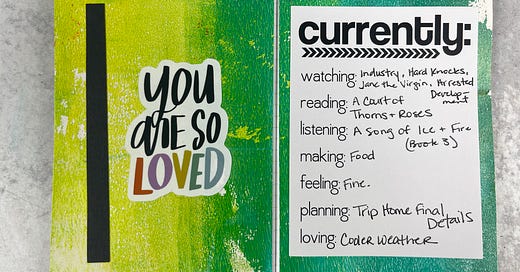 you
are so
LOVED
currently:
watching: Industry, Hard Knocks,
Jane the Virgin, Arrested
Develop-
ment
reading: A Court of
Thorns + Roses
listening: A Song of Ice + Fire
(Book 3)
making: Food
feeling: Fine.
planning: Trip Home Final
Details
loving: Cooler Weather